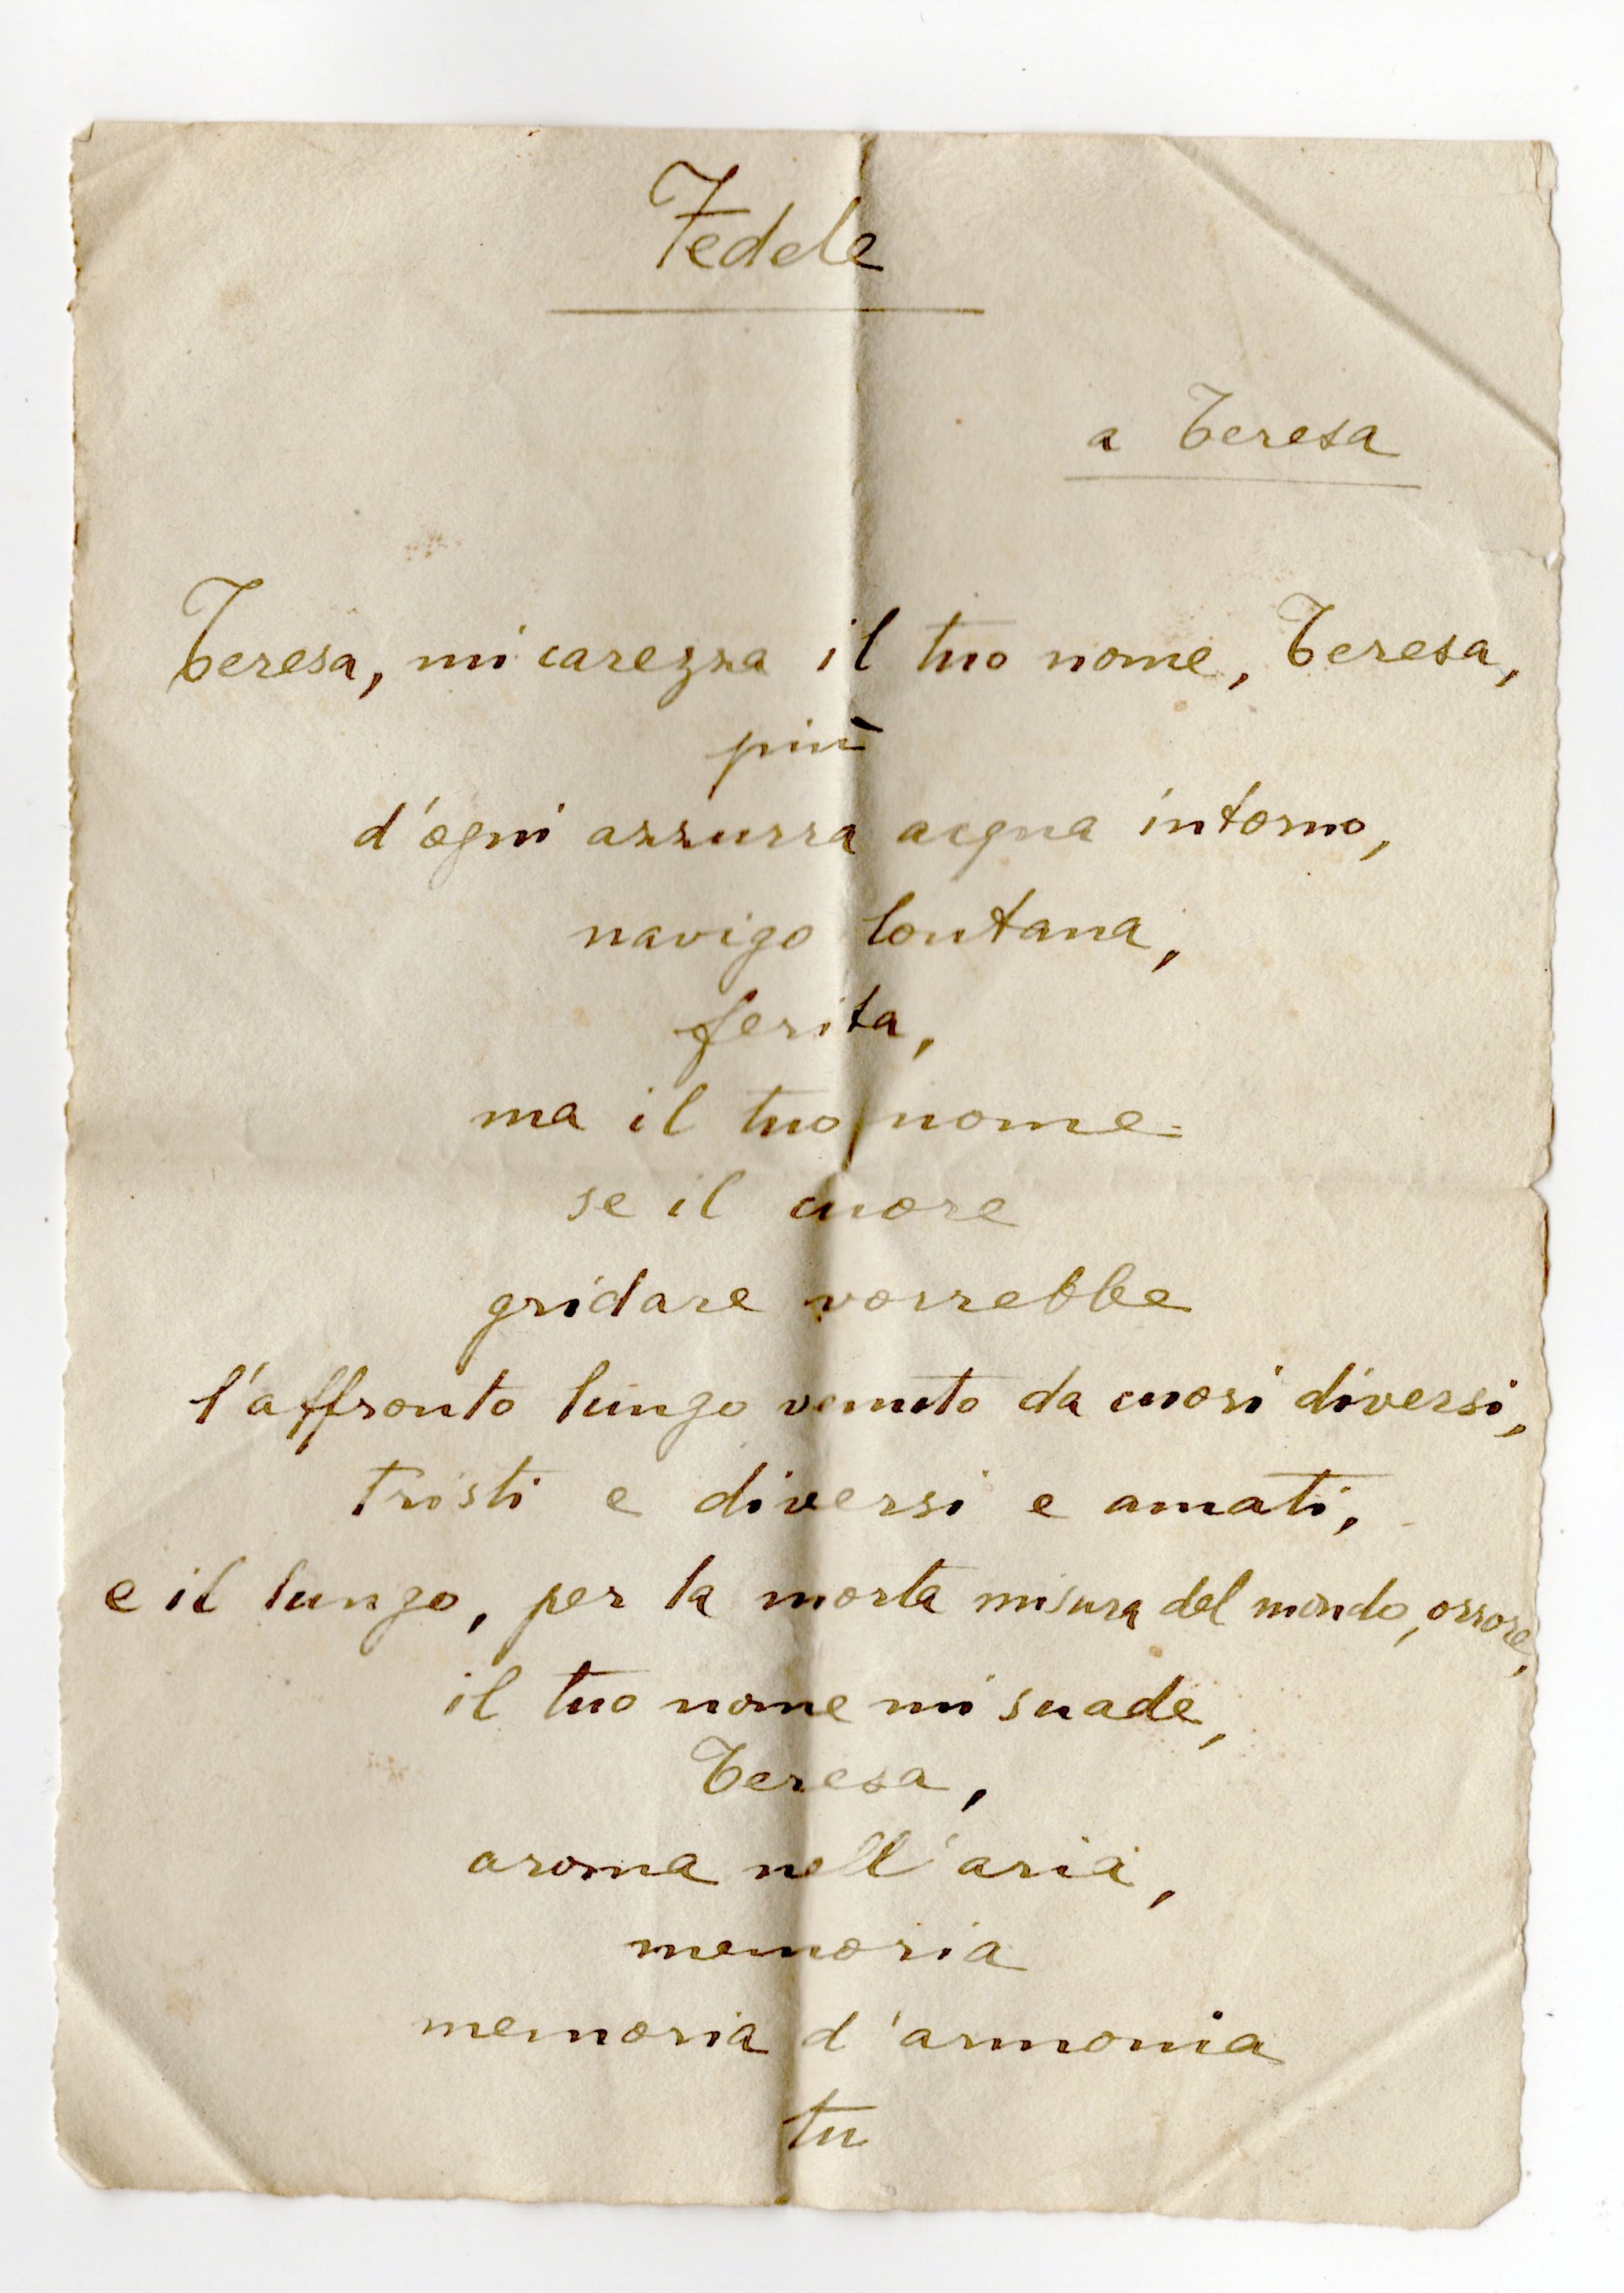 Fedele
a Teresa
Teresa, mi carezza il tuo nome, Teresa,
più
d'ogni azzurra acqua intorno,
navigo lontana,
ferita,
ma il tuo nome
se il cuore
gridare vorrebbe
l'affronto lungo venuto da cuori diversi,
tristi e diversi e amati,
e il lungo, per la morta misura del mondo, orrore,
il tuo nome mi suade,
Teresa,
aroma nell'aria,
memoria
memoria d'armonia
tu